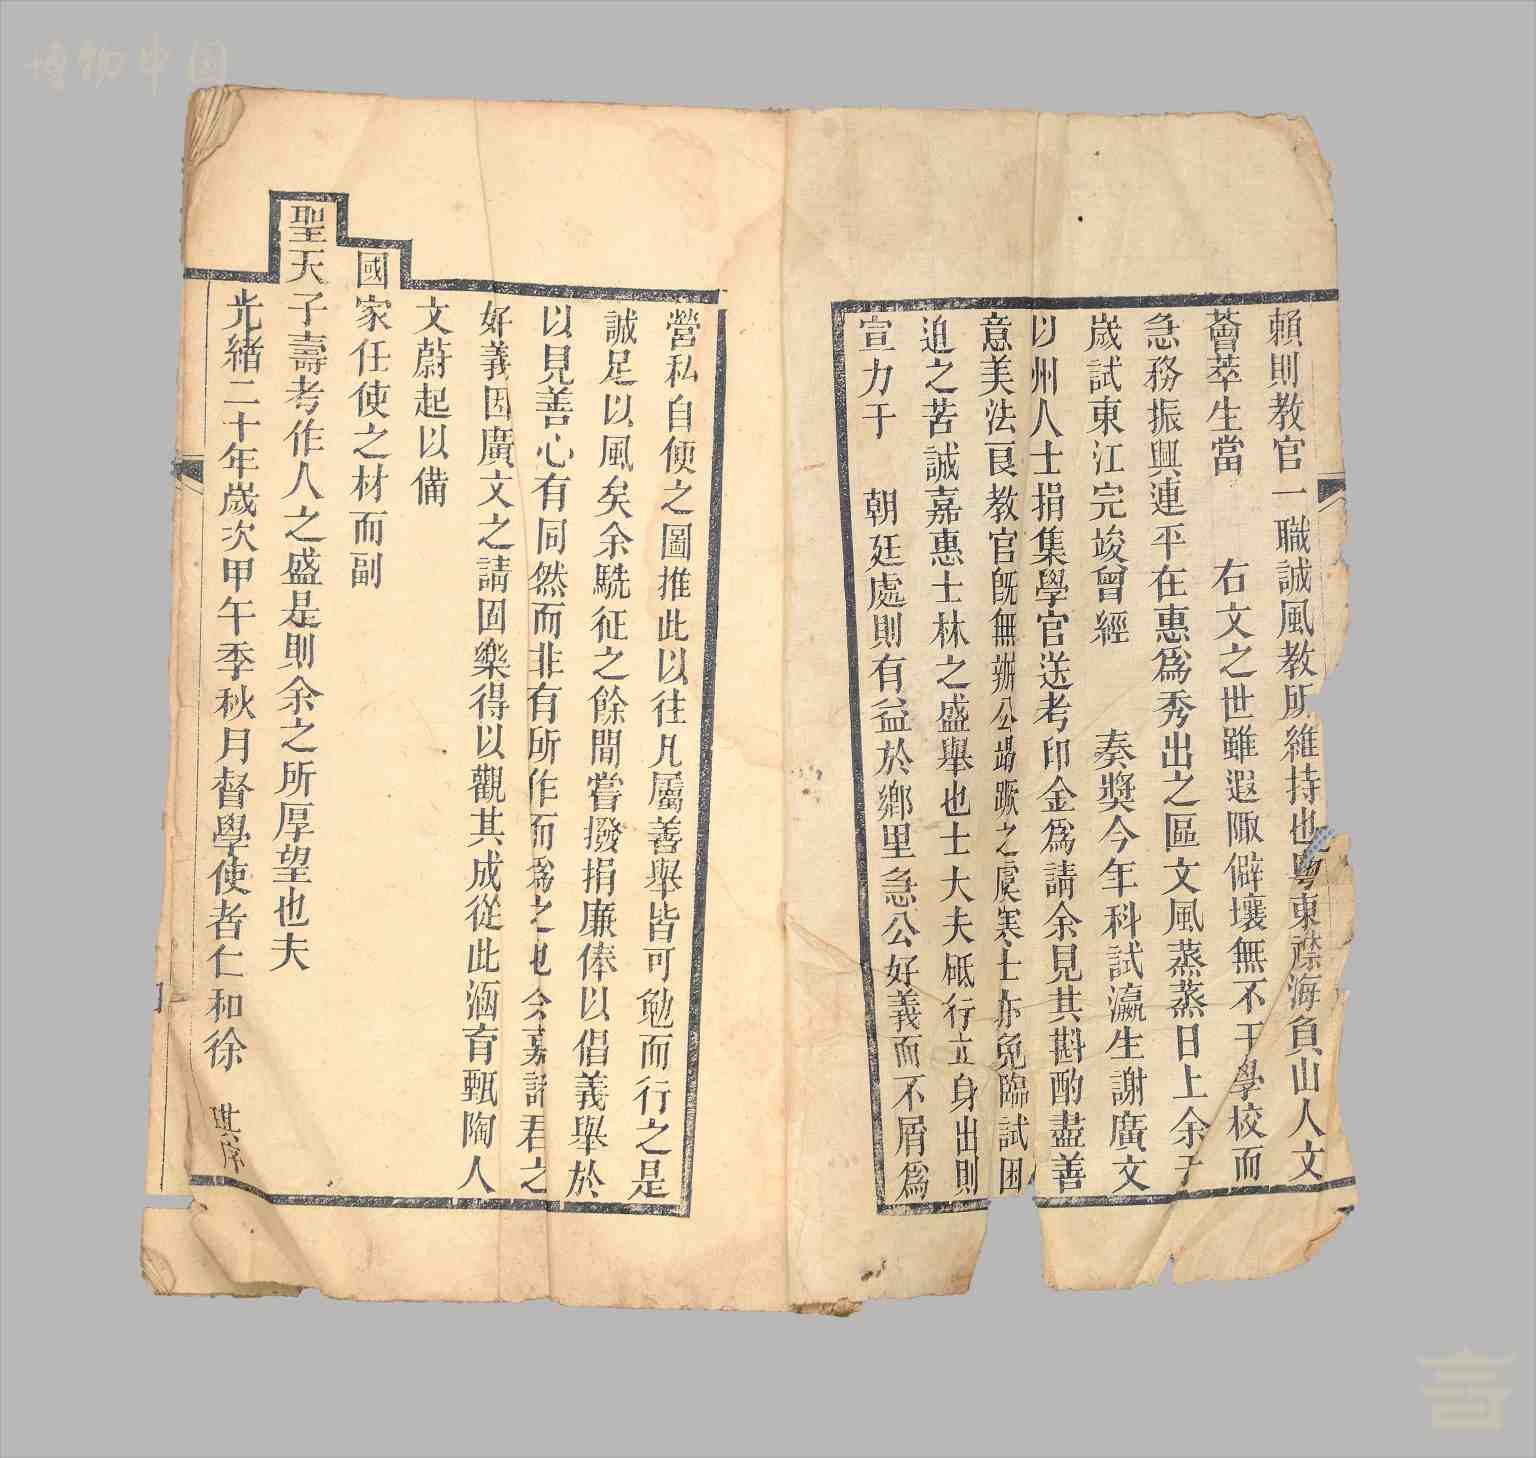 博物中国
賴則教官一職誠風教所維持也粵東襟海負山人文
薈萃生當 右文之世雖遐陬僻壤無不干學校而
急務振興連平在惠為秀出之區文風蒸蒸日上余于
歲試東江完竣曾經 奏獎今年科試瀛生謝廣文
以州人士捐集學官送考印金為請余見其斟酌盡善
意美法良教官旣無辦公竭蹶之虞寒士亦免臨試困
迫之苦誠嘉惠士林之盛舉也士大夫砥行立身出則
宣力于 朝廷處則有益於鄉里急公好義而不屑為
營私自便之圖推此以往凡屬善舉皆可勉而行之是
誠足以風矣余駪征之餘間嘗撥捐廉俸以倡義舉於
以見善心有同然而非有所作而為之也今嘉諸君之
好義因廣文之請固樂得以觀其成從此涵育甄陶人
文蔚起以備
國家任使之材而副
聖天子壽考作人之盛是則余之所厚望也夫
光緒二十年歲次甲午季秋月督學使者仁和徐 琪序